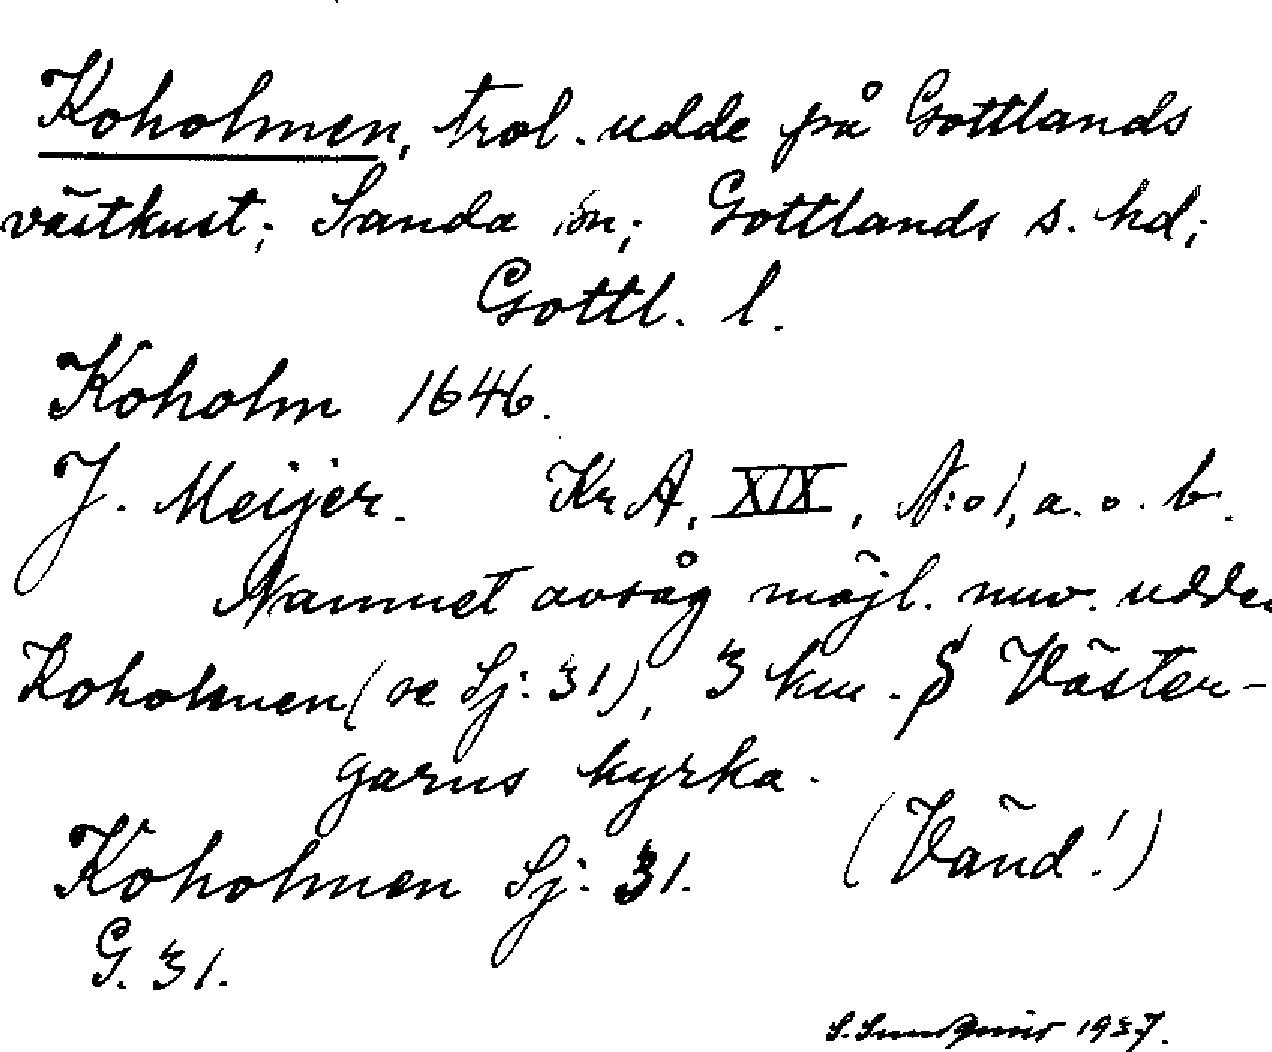 Koholmen, trol. udde på Gottlands
västkust; Sanda sn; Gottlands s. hd;
Gottl. l.
Koholm 1646.
J. Meijer. KrA, XIX, N:o 1, a. o. b.
Namnet avsåg möjl. nuv. udden
Koholmen (se Sj: 31), 3 km. S Väster-
garns kyrka.
(Vänd!)
Koholmen Sj: 31.
G. 31.
1937.